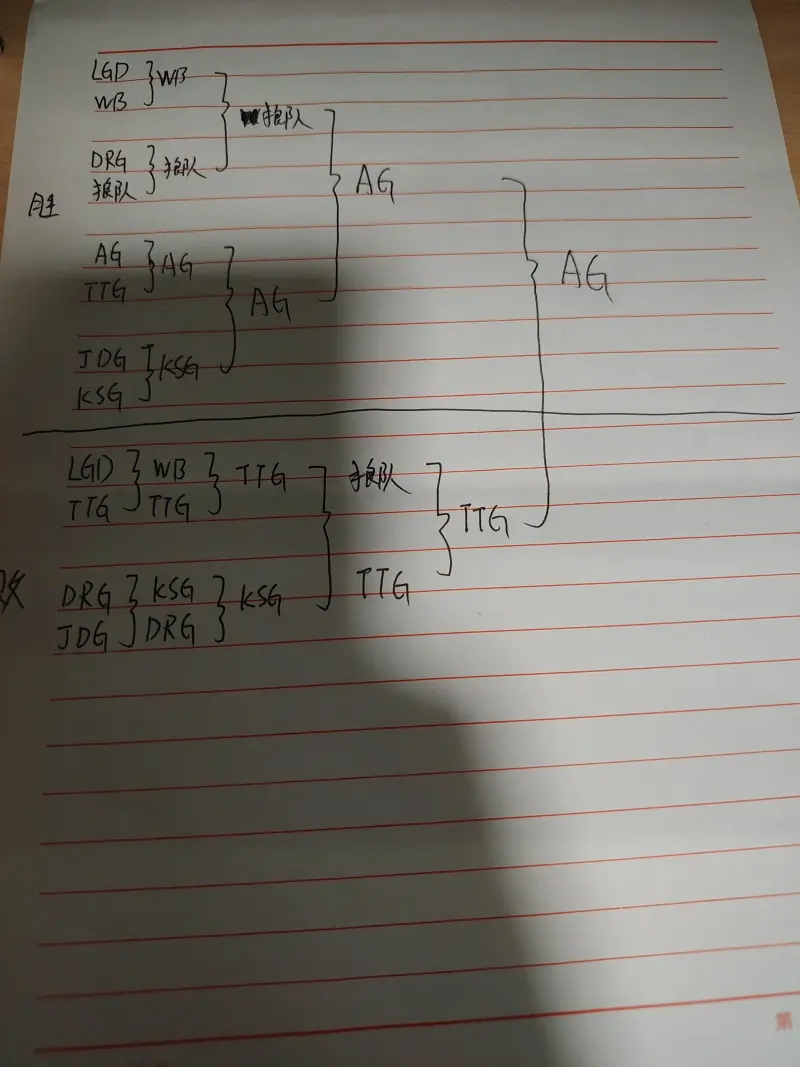 LGD WB
WB
狼队
DRG 狼队
狼队
AG
胜
AG AG
TTG
AG
AG
JDG KSG
KSG
LGD WB TTG 狼队
TTG TTG
TTG
DRG KSG KSG TTG
JDG DRG
败
第